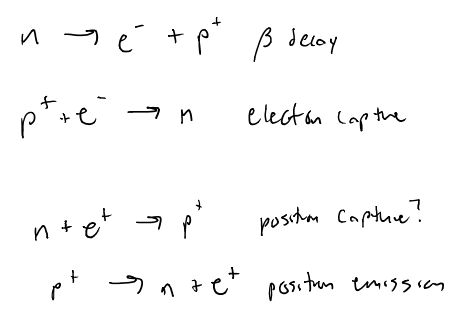 n → e⁻ + p⁺ β decay
p⁺ + e⁻ → n electron capture
n + e⁺ → p⁺ positron capture?
p⁺ → n + e⁺ positron emission